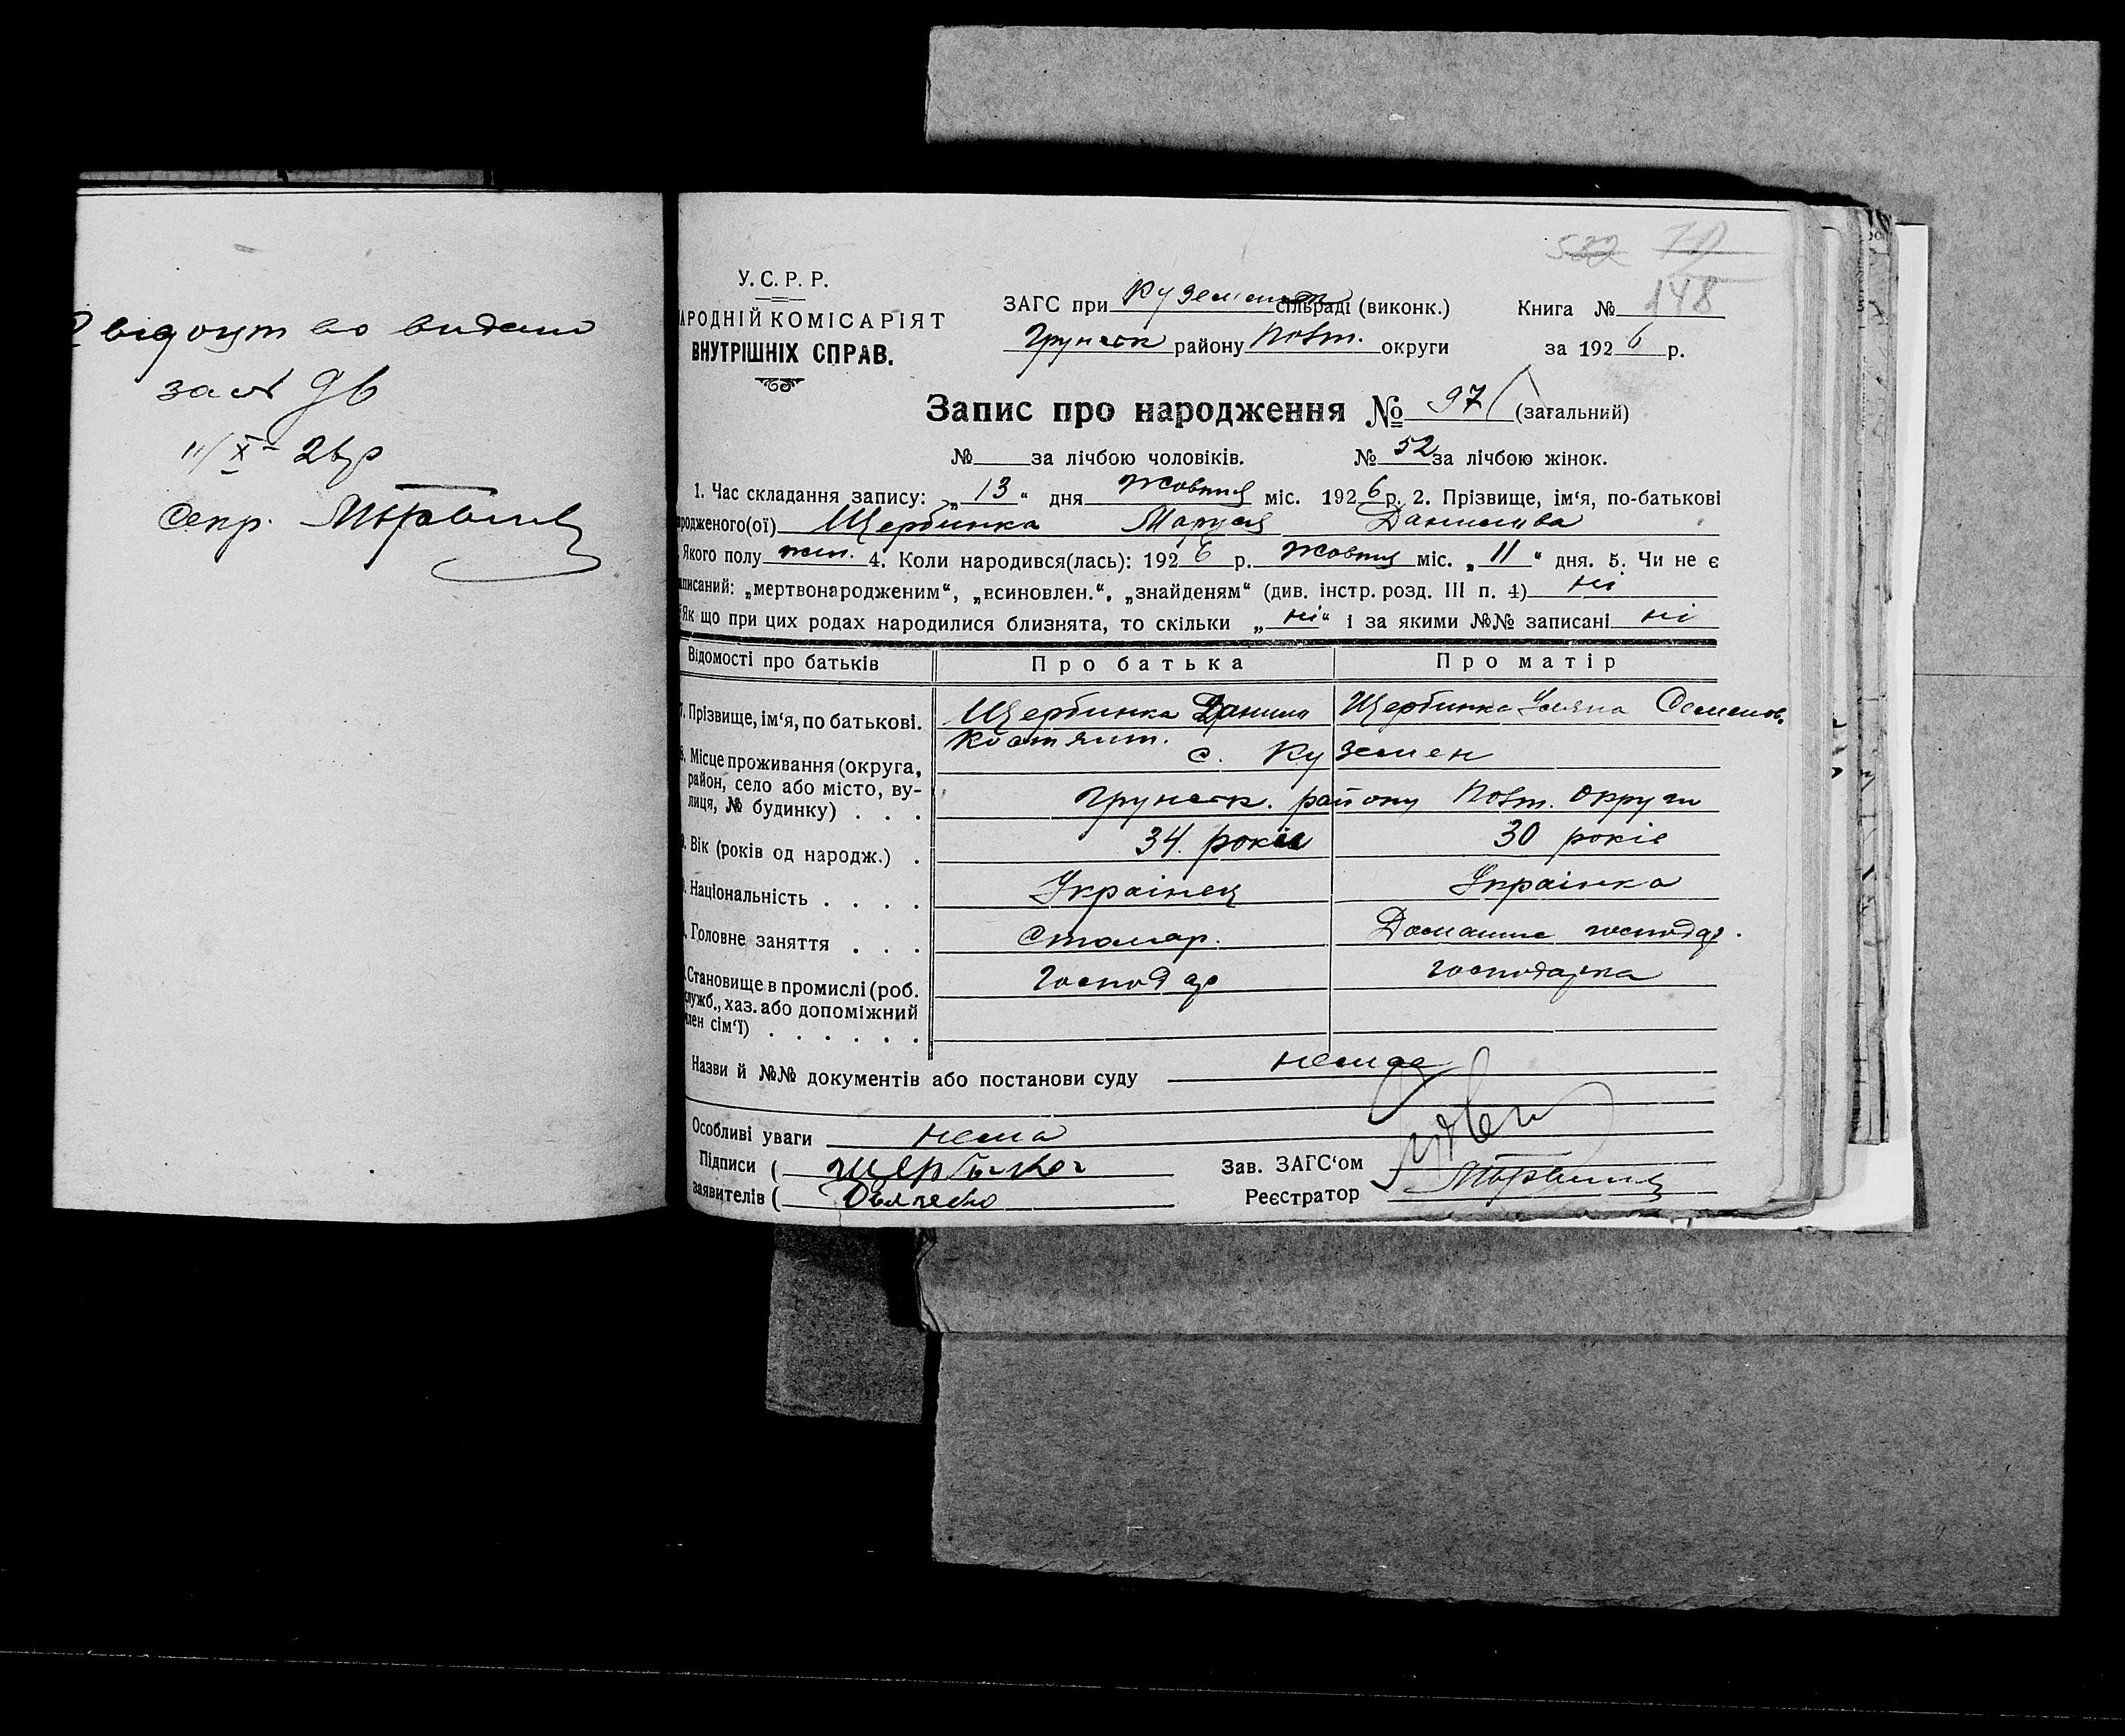 відоцтво видано
за №
11/X 26р
Секр.
532
148
У.С.Р.Р.
АРОДНІЙ КОМІСАРІЯТ
ВНУТРІШНІХ СПРАВ.
ЗАГС при Куземинск сільраді (виконк.)
Грунськ району Полт. округи
Книга №
за 1926 р.
Запис про народження № 97 (загальний)
№ за лічбою чоловіків. № 52 за лічбою жінок.
1. Час складання запису: „13“ дня Жовтня міс. 1926 р. 2. Прізвище, ім‘я, по-батькові
родженого(ої) Щербинка Маруся Данилова
Якого полу жін. 4. Коли народився(лась): 1926 р. жовтня міс. „11“ дня. 5. Чи не є
писаний: „мертвонародженим“, „всиновлен.“, „знайденям“ (див. інстр. розд. III п. 4) ні
Як що при цих родах народилися близнята, то скільки „ні“ і за якими №№ записані ні
Відомості про батьків Про батька Про матір
7. Прізвище, ім‘я, по батькові. Щербинка Данило Щербинка Уляна Семенов.
Костянт.
8. Місце проживання (округа, с. Куземен
район, село або місто, ву-
лиця, № будинку) . . . Грунськ. району Полт. Округи
9. Вік (років од народж.) . 34. років 30 років
Національність . . . . Українец Українка
Головне заняття . . . Столяр. Домашнє господар.
Становище в промислі (роб. Господар господарка
служб., хаз. або допоміжний
член сім‘ї) . . . . . .
Назви й №№ документів або постанови суду немає
Особливі уваги нема
Підписи ( Щербинка
заявителів (
Зав. ЗАГС‘ом
Реєстратор